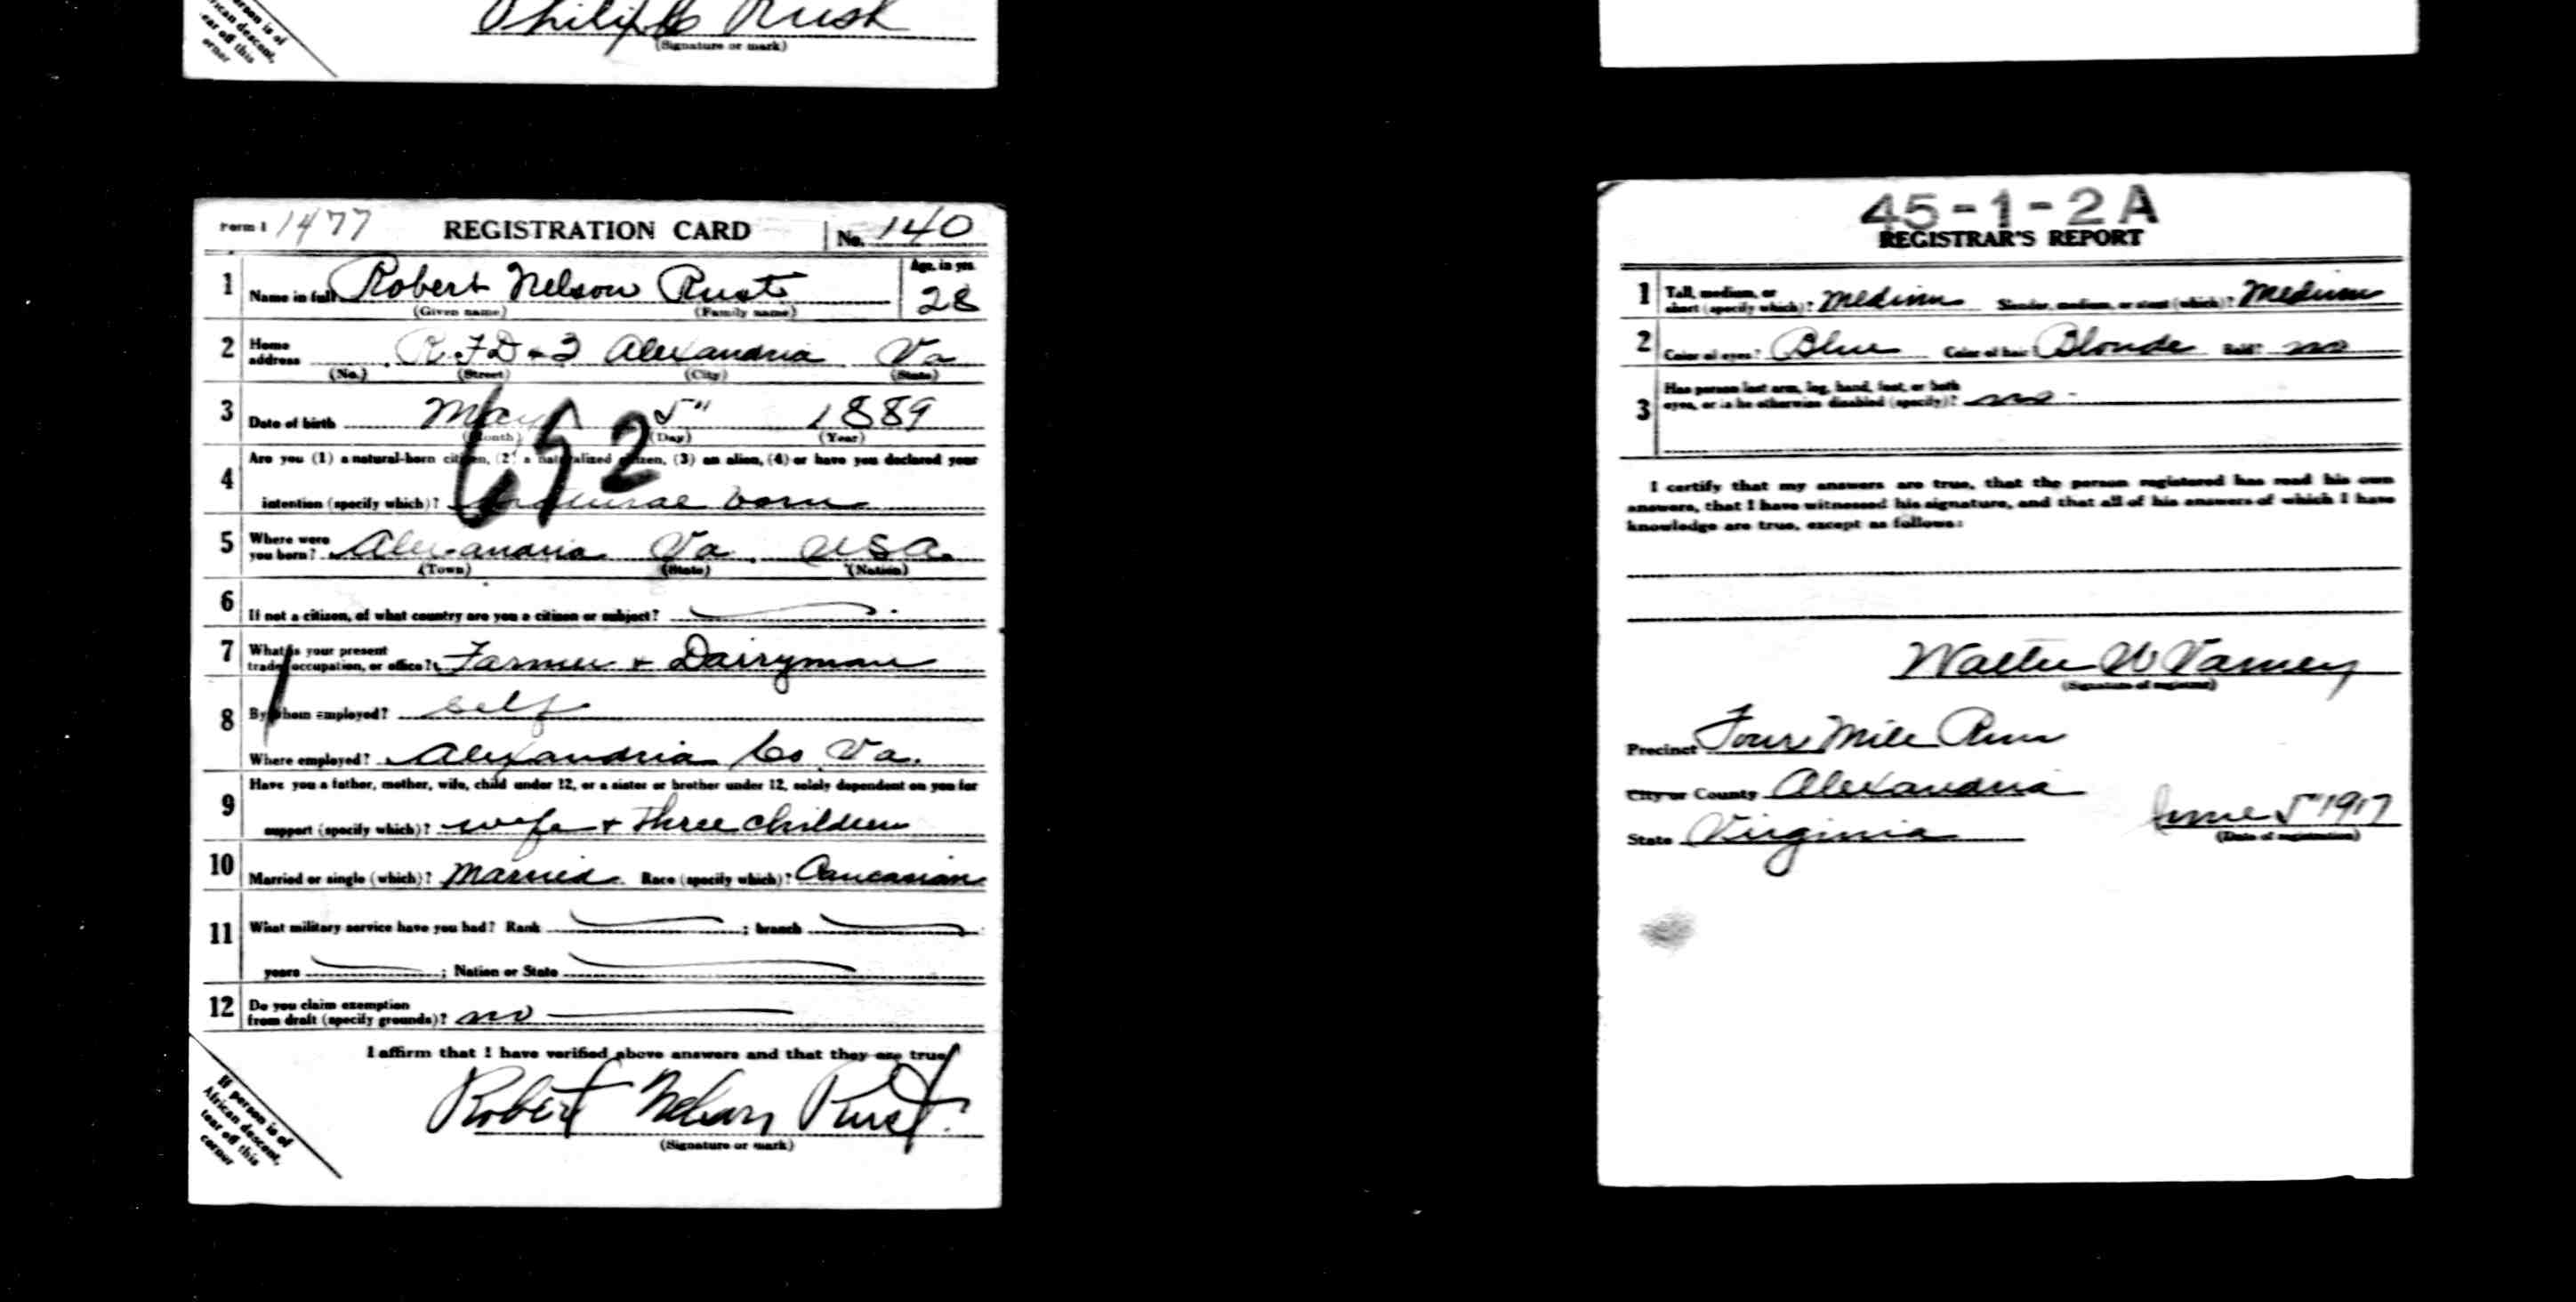 erson is of
rican descent,
ear off this
orner
Philip Rusk
(Signature or mark)
Form 1 1477 REGISTRATION CARD No. 140
1 Name in full Robert Nelson Rust Age, in yrs. 28
(Given name) (Family name)
2 Home address R.F.D - 3 Alexandria Va
(No.) (Street) (City) (State)
3 Date of birth May 5" 1889
(Month) (Day) (Year)
652
4 Are you (1) a natural-born citizen, (2) a naturalized citizen, (3) an alien, (4) or have you declared your
intention (specify which)? natural born
5 Where were you born? Alexandria Va. USA.
(Town) (State) (Nation)
6 If not a citizen, of what country are you a citizen or subject?
7 What is your present trade, occupation, or office? Farmer + Dairyman
8 By whom employed? self
Where employed? Alexandria Co. Va.
9 Have you a father, mother, wife, child under 12, or a sister or brother under 12, solely dependent on you for
support (specify which)? wife + Three children
10 Married or single (which)? Married. Race (specify which)? Caucasian
11 What military service have you had? Rank ; branch
years ; Nation or State
12 Do you claim exemption from draft (specify grounds)? no
I affirm that I have verified above answers and that they are true
Robert Nelson Rust.
(Signature or mark)
If person is of
African descent,
tear off this
corner
45-1-2A
REGISTRAR'S REPORT
1 Tall, medium, or short (specify which)? Medium Slender, medium, or stout (which)? Medium
2 Color of eyes? Blue Color of hair Blonde Bald? no
3 Has person lost arm, leg, hand, foot, or both eyes, or is he otherwise disabled (specify)? no
I certify that my answers are true, that the person registered has read his own
answers, that I have witnessed his signature, and that all of his answers of which I have
knowledge are true, except as follows:
Walter W Varney
(Signature of registrar)
Precinct Four Mile Run
City or County Alexandria
State Virginia June 5" 1917
(Date of registration)